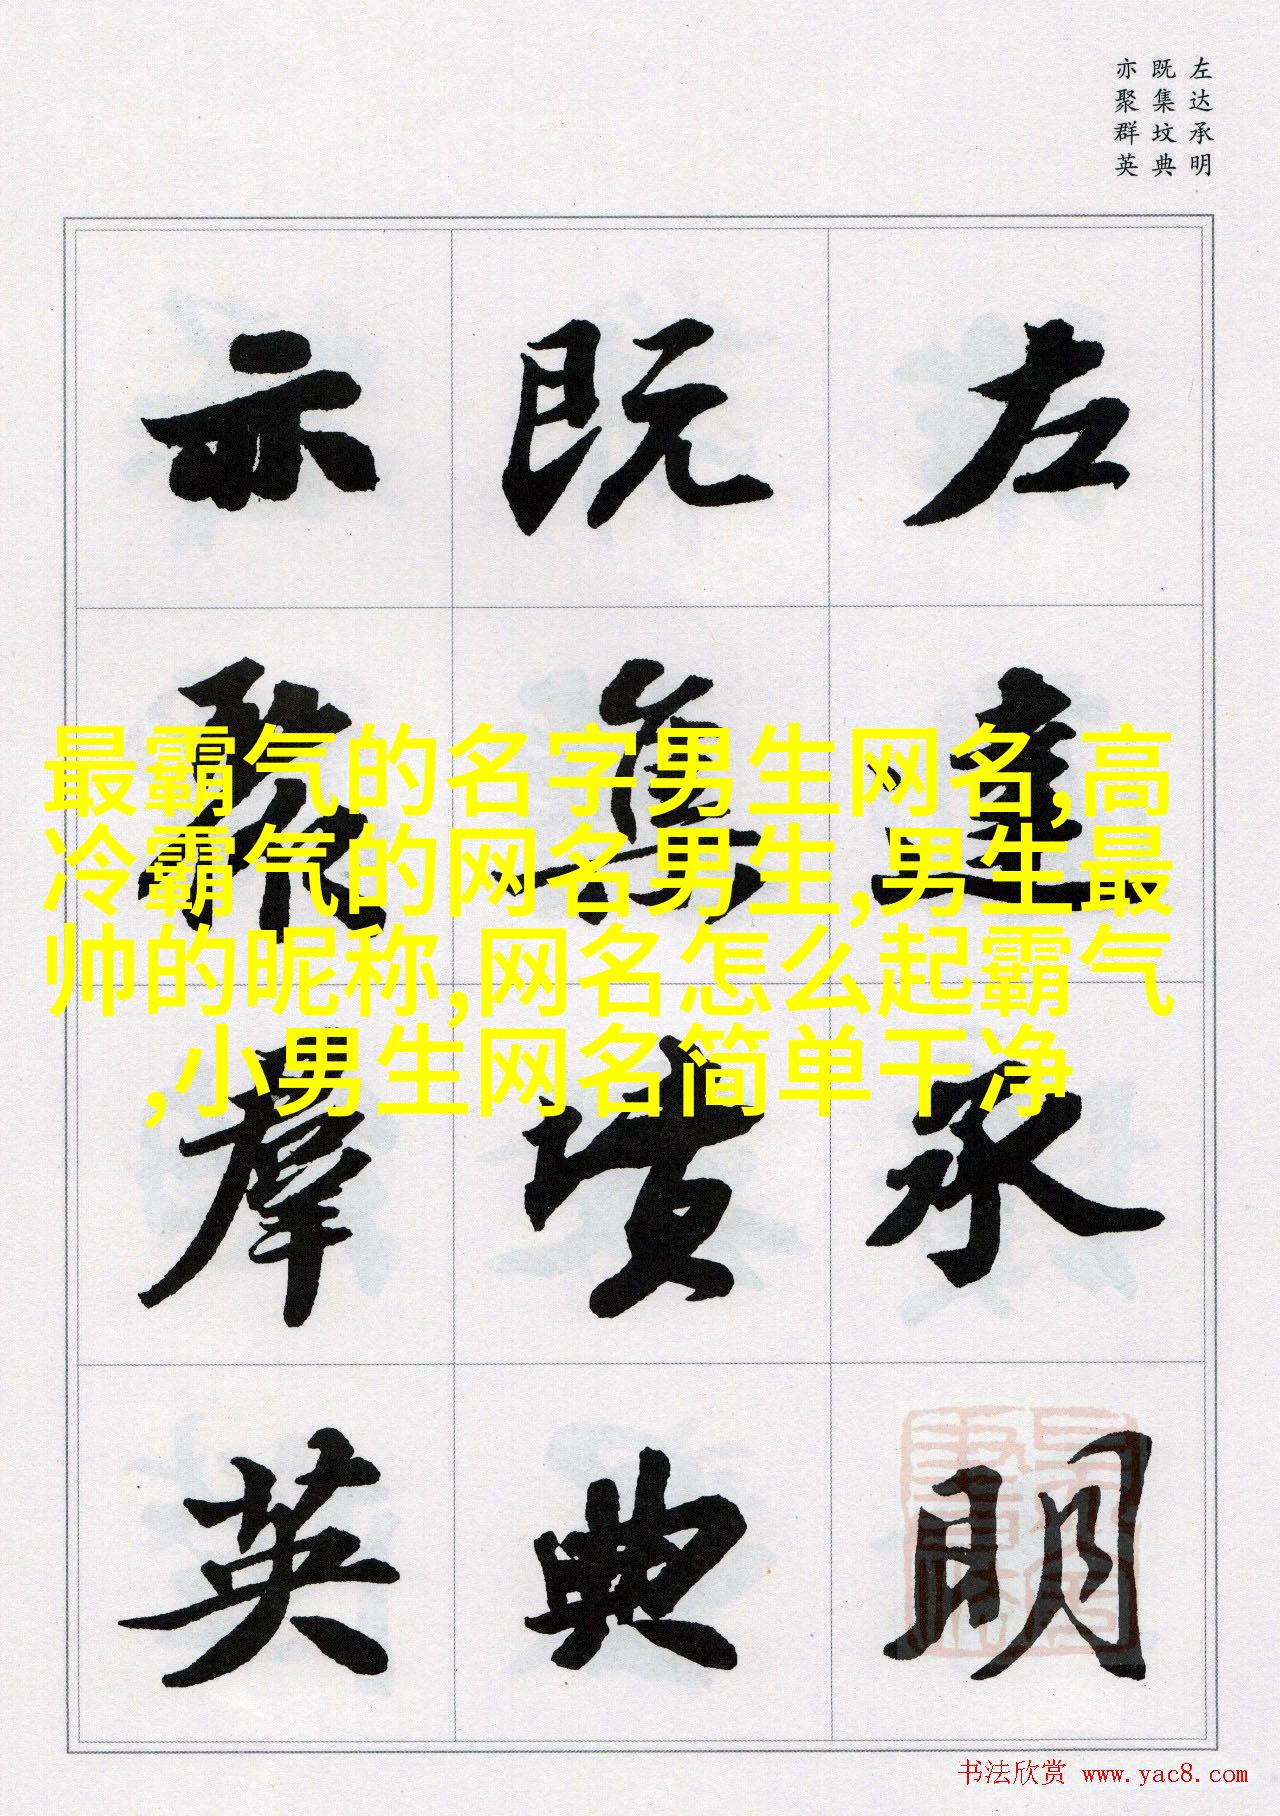 左达承明
既集坟典
亦聚群英
左達承明
既集墳典
亦聚群英
最霸气的名字男生网名,高
冷霸气的网名男生,男生最
帅的昵称,网名怎么起霸气
,小男生网名简单干净
书法欣赏 www.yac8.com